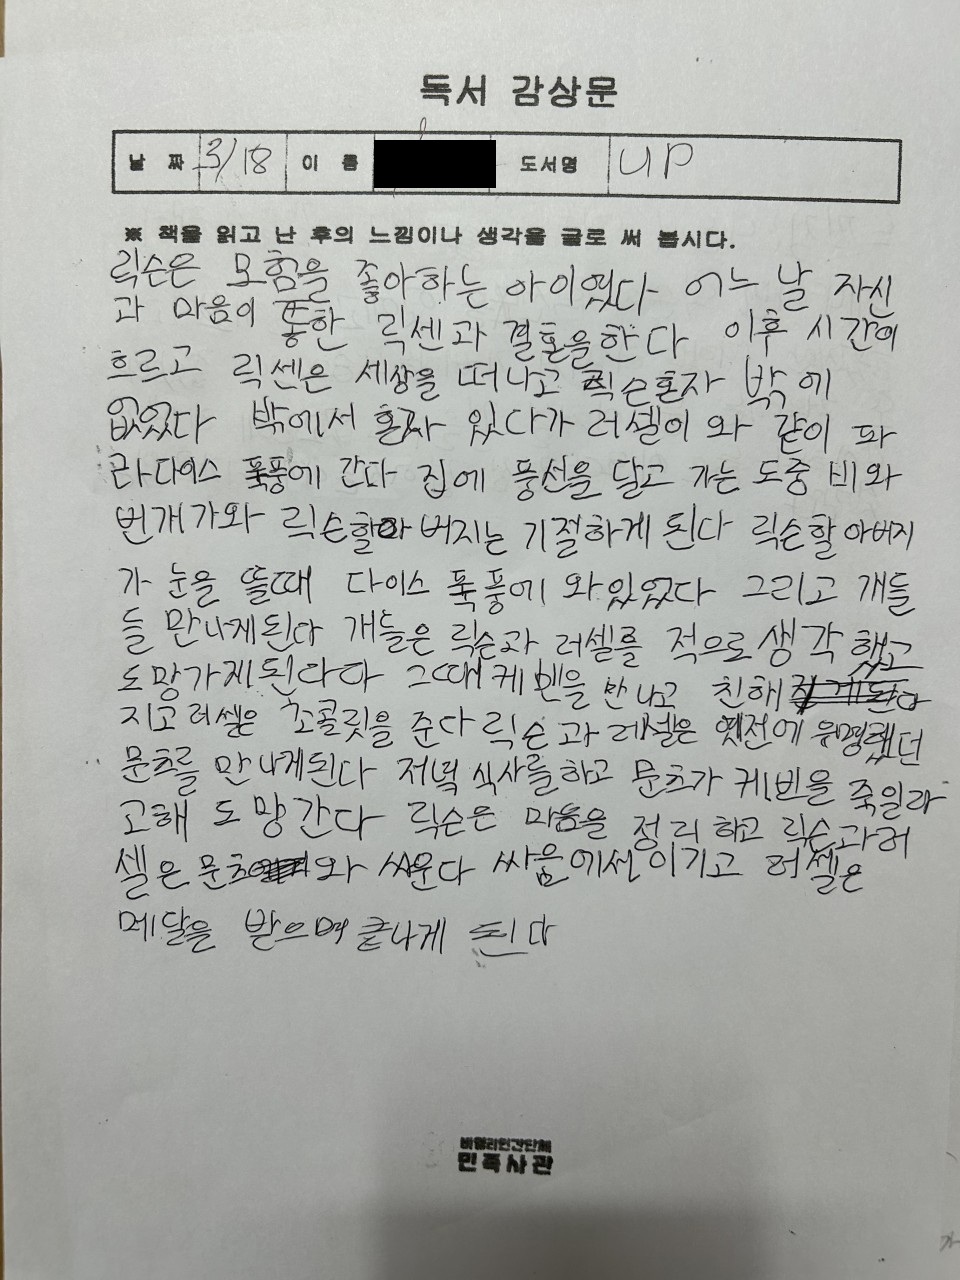 독서 감상문
날 짜 3/18 이 름 도서명 UP
※ 책을 읽고 난 후의 느낌이나 생각을 글로 써 봅시다.
릭슨은 모험을 좋아하는 아이였다 어느 날 자신
과 마음이 통한 릭센과 결혼을한다 이후 시간이
흐르고 릭센은 세상을 떠나고 릭슨혼자 밖에
없었다 밖에서 혼자 있다가 러셀이 와 같이 파
라다이스 폭풍에 간다 집에 풍선을 달고 가는 도중 비와
번개가와 릭슨할아버지는 기절하게 된다 릭슨할아버지
가 눈을 뜰때 다이스 폭풍에 와있었다 그리고 개들
들 만나게된다 개들은 릭슨과 러셀를 적으로 생각했고
도망가게된다다 그때 케빈을 만나고 친해
지고 러셀은 초콜릿을 준다 릭슨과 레셀은 옛전에 유명했던
문츠를 만나게된다 저녁 식사를하고 문츠가 케빈을 죽일라
고해 도망간다 릭슨은 마음을 정리하고 릭슨과러
셀은 문츠와 싸운다 싸움에선 이기고 러셀은
메달을 받으며 끝나게 된다
민족사관